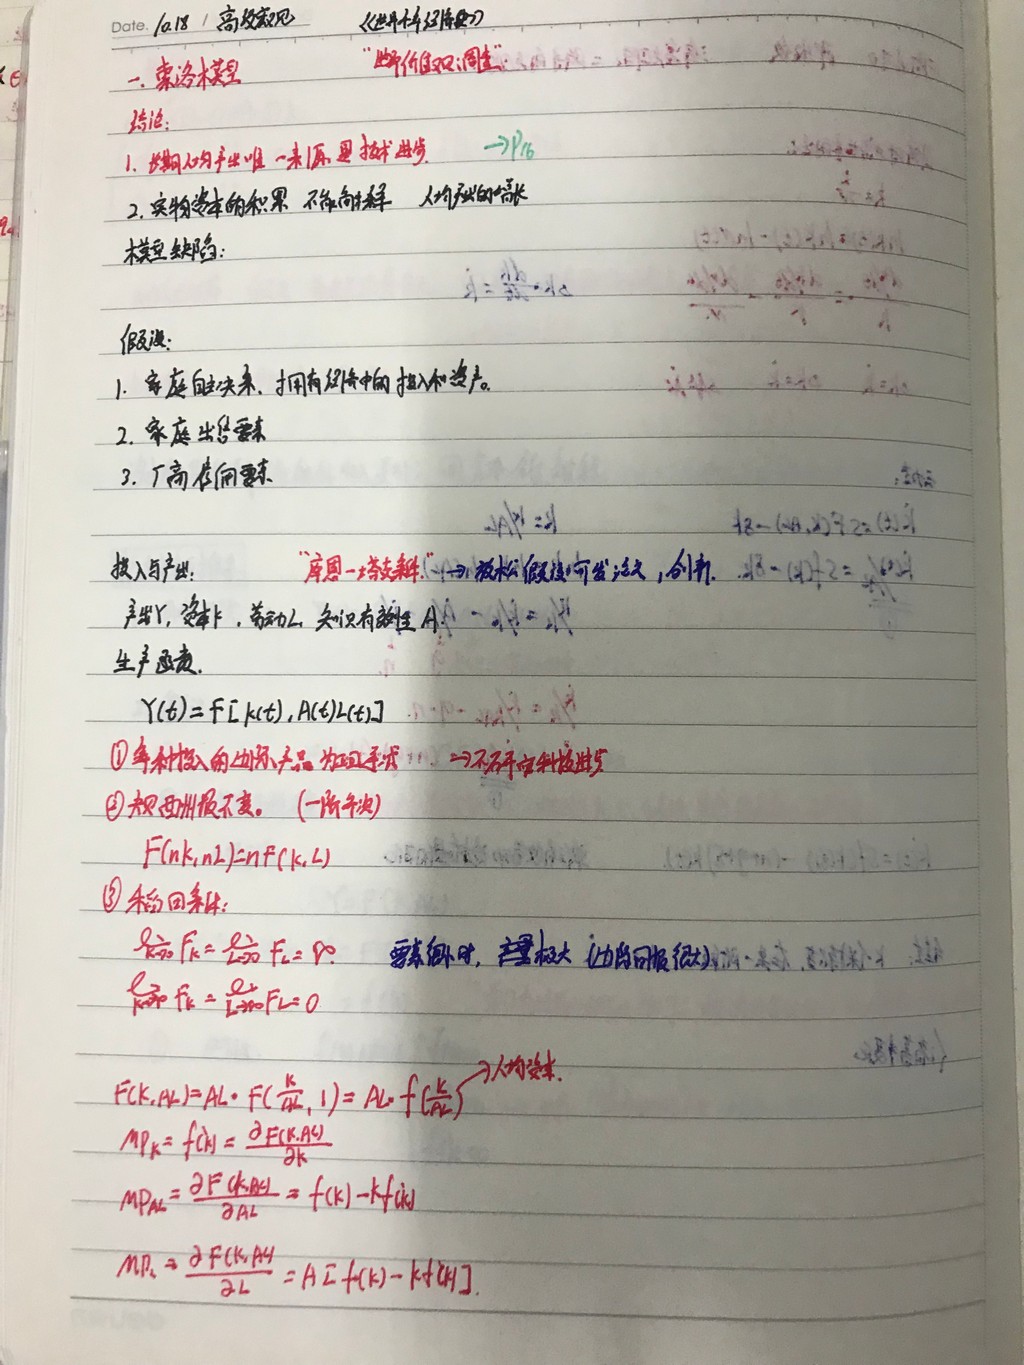 Date. 10.18 / 高级宏观 《世界千年经济史》
一. 索洛模型
结论:
1. 长期人均产出唯一来源是技术进步 →P16
2. 实物资本的积累 不能解释 人均产出的增长
模型缺陷:
假设:
1. 家庭自主决策、拥有经济中的投入和资产。
2. 家庭出售要素
3. 厂商使用要素
投入与产出: "库恩—塔克条件" → 放松假设,可发论文,创新.
产出Y, 资本K, 劳动L, 知识有效性 A
生产函数.
Y(t)=F[K(t),A(t)L(t)]
① 每种投入的边际产品为正
② 规模报酬不变。 (一阶齐次)
F(nK,nL)=nF(K,L)
③ 稻田条件:
lim K→0 FK = lim L→0 FL = ∞ 要素很小时, 产量极大 (边际回报很大)
lim K→∞ FK = lim L→∞ FL = 0
F(K,AL)=AL·F(K/AL, 1)=AL·f(K/AL) →人均资本.
MPK = f'(k) = ∂F(K,AL)/∂K
MPAL = ∂F(K,AL)/∂AL = f(k)-kf'(k)
MPL = ∂F(K,AL)/∂L = A[f(k)-kf'(k)].